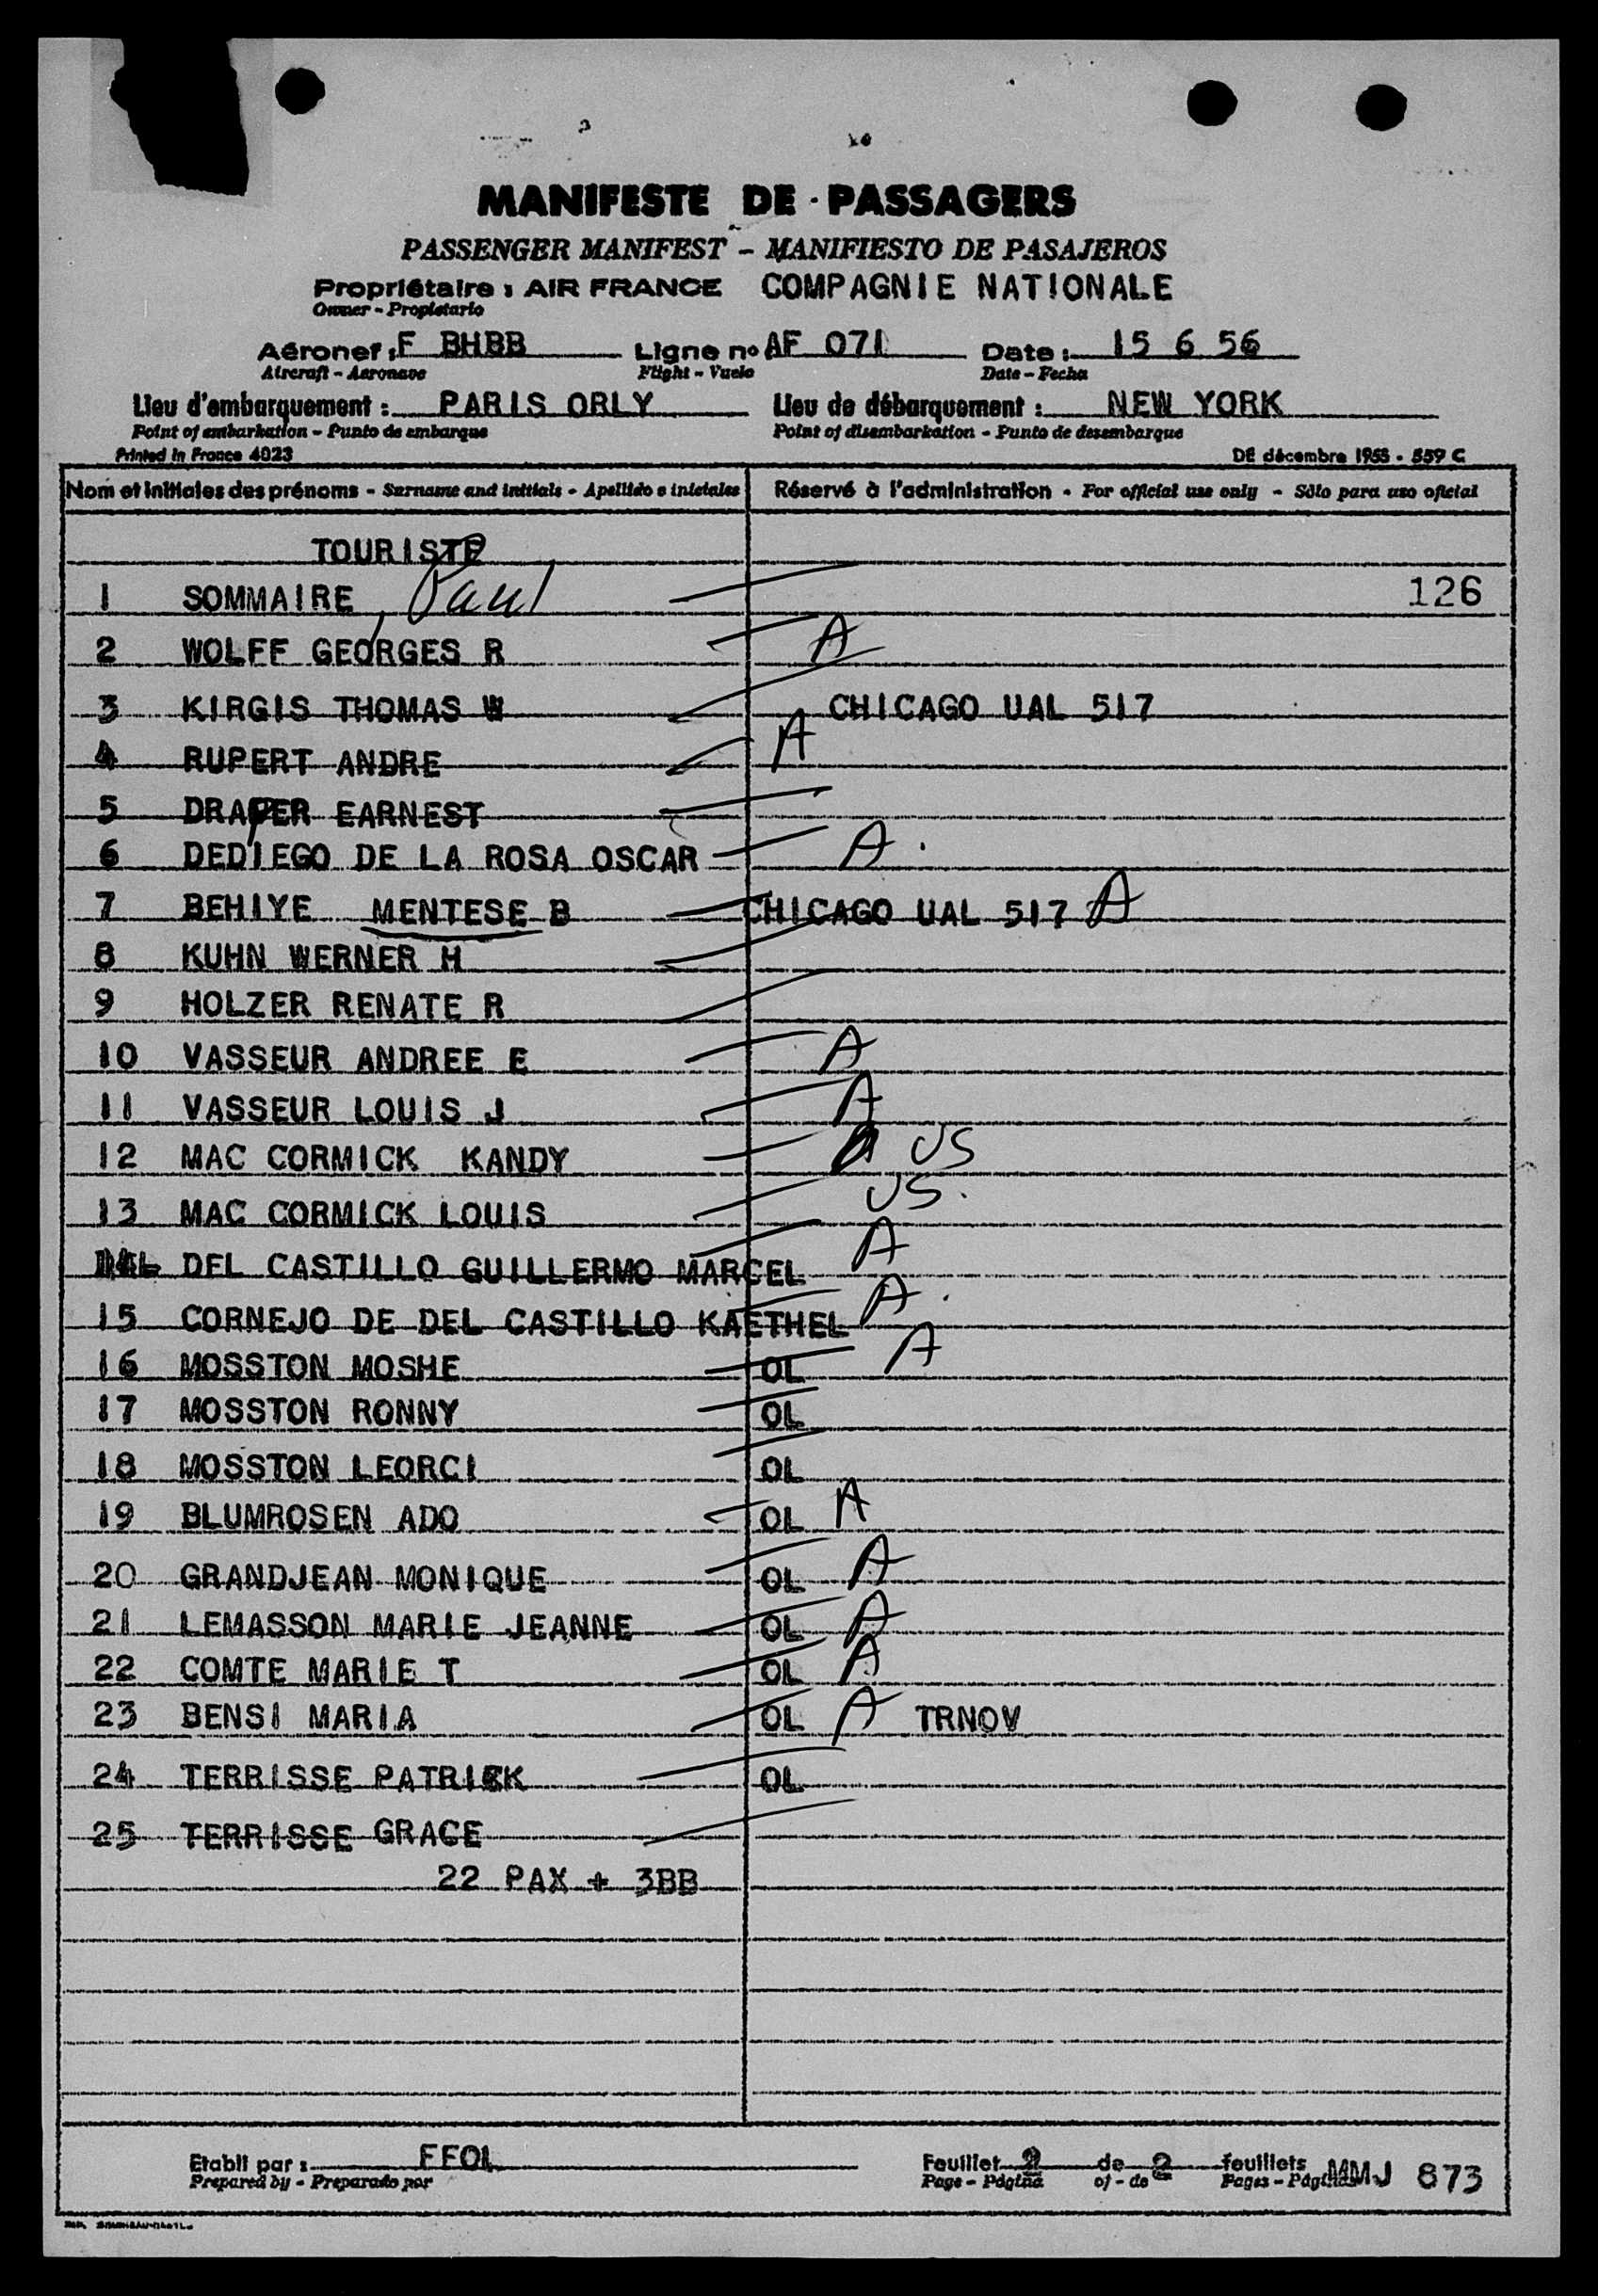 MANIFESTE DE PASSAGERS
PASSENGER MANIFEST - MANIFIESTO DE PASAJEROS
Propriétaire : AIR FRANCE COMPAGNIE NATIONALE
Owner - Propietario
Aéronef : F BHBB Ligne no AF 071 Date : 15 6 56
Aircraft - Aeronave Flight - Vuelo Date - Fecha
Lieu d'embarquement : PARIS ORLY Lieu de débarquement : NEW YORK
Point of embarkation - Punto de embarque Point of disembarkation - Punto de desembarque
Printed in France 4023 DE décembre 1955 - 559 C
Nom et initiales des prénoms - Surname and initials - Apellido e iniciales Réservé à l'administration - For official use only - Sólo para uso oficial
TOURISTE
1 SOMMAIRE, Paul 126
2 WOLFF GEORGES R A
3 KIRGIS THOMAS W CHICAGO UAL 517
4 RUPERT ANDRE A
5 DRAPER EARNEST
6 DEDIEGO DE LA ROSA OSCAR A.
7 BEHIYE MENTESE B CHICAGO UAL 517 A
8 KUHN WERNER H
9 HOLZER RENATE R
10 VASSEUR ANDREE E A
11 VASSEUR LOUIS J A
12 MAC CORMICK KANDY US
13 MAC CORMICK LOUIS US.
DEL CASTILLO GUILLERMO MARCEL A
15 CORNEJO DE DEL CASTILLO KAETHEL A.
16 MOSSTON MOSHE OL A
17 MOSSTON RONNY OL
18 MOSSTON LEORCI OL
19 BLUMROSEN ADO OL A
20 GRANDJEAN MONIQUE OL A
21 LEMASSON MARIE JEANNE OL A
22 COMTE MARIE T OL A
23 BENSI MARIA OL A TRNOV
24 TERRISSE PATRICK OL
25 TERRISSE GRACE
22 PAX + 3BB
Etabli par : FFOL Feuillet 2 de 2 feuillets MMJ 873
Prepared by - Preparado por Page - Página of - de Pages - Páginas